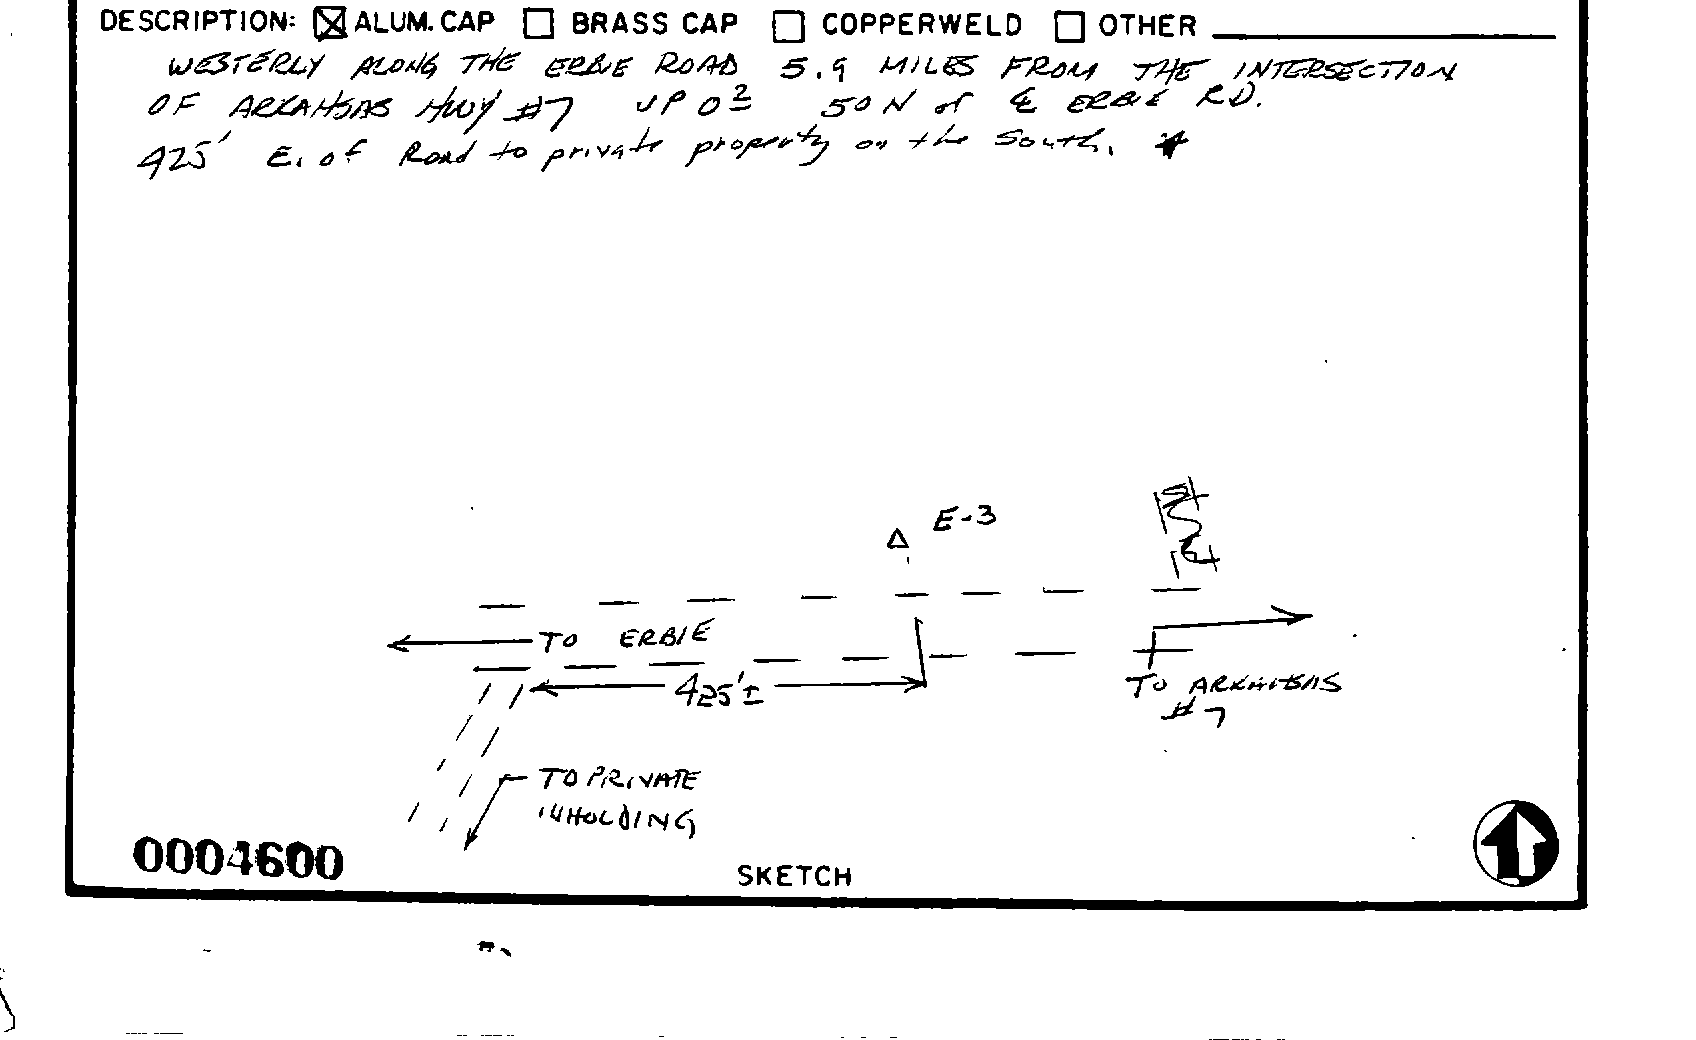 DESCRIPTION: ☒ ALUM. CAP ☐ BRASS CAP ☐ COPPERWELD ☐ OTHER
WESTERLY ALONG THE ERBIE ROAD 5.9 MILES FROM THE INTERSECTION
OF ARKANSAS HWY #7 UP 0² 50 N of ℄ ERBIE RD.
425' E. of Road to private property on the South. *
E-3
TO ERBIE
425'±
TO ARKANSAS
#7
TO PRIVATE
INHOLDING
0004600
SKETCH